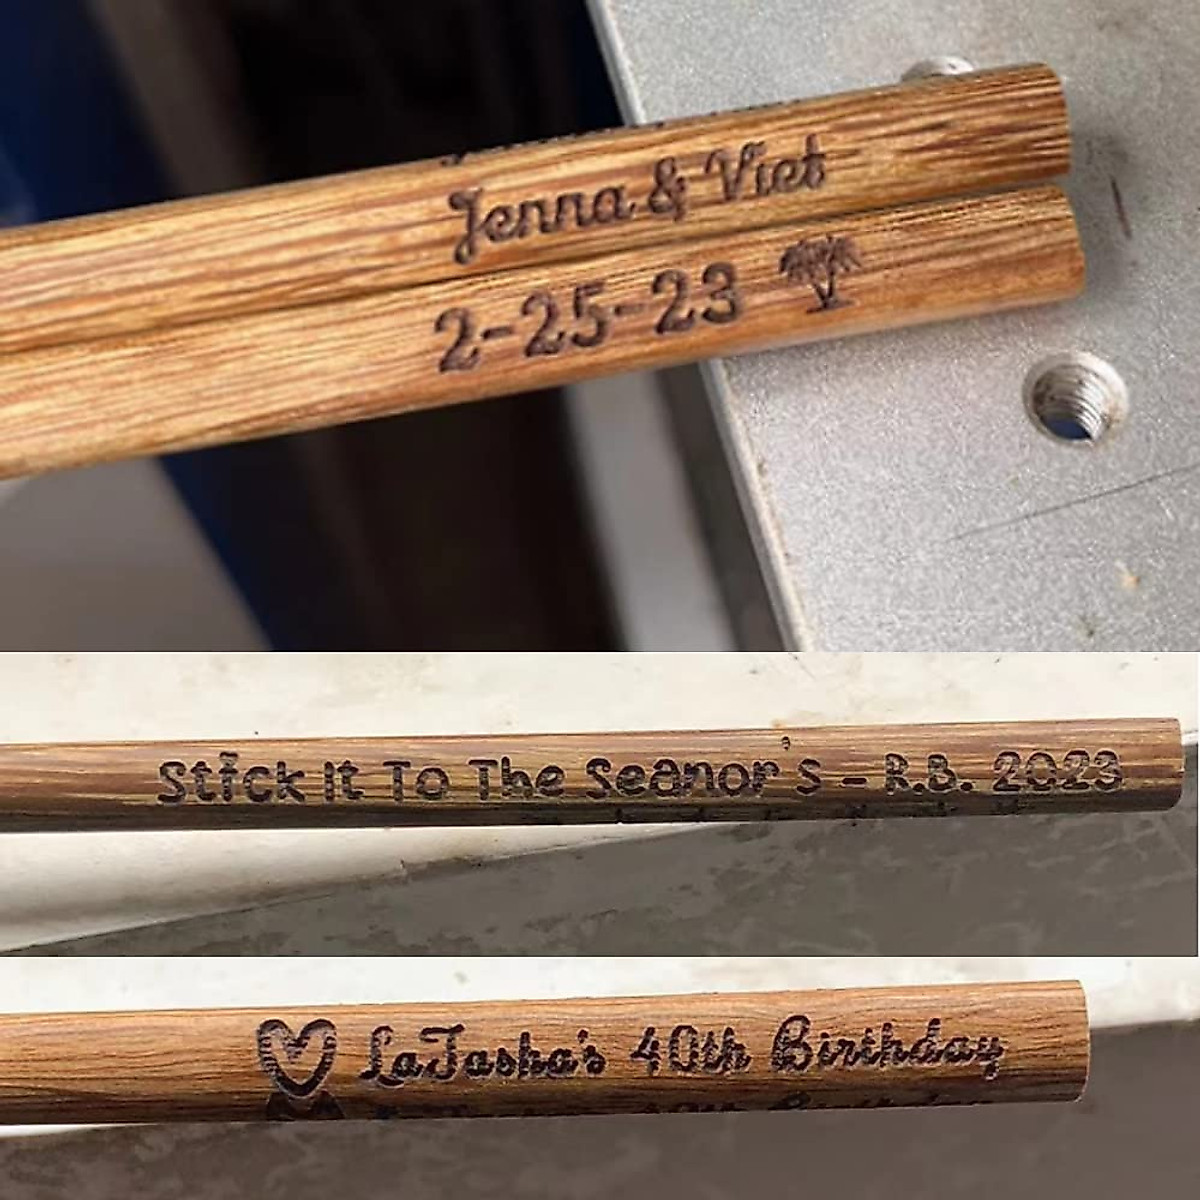 Jenna & Viet
2-25-23
Stick It To The Seanor's - R.B. 2023
LaTasha's 40th Birthday